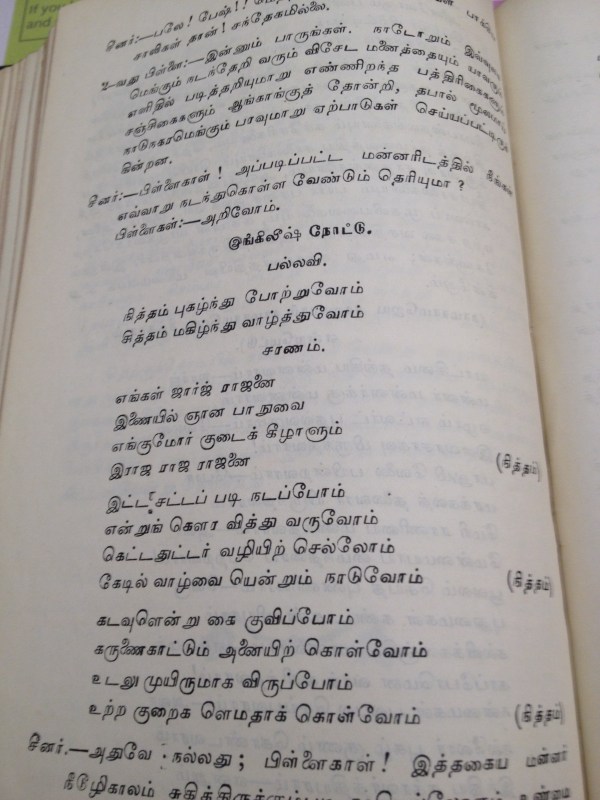 If you
and
சினர்:—பலே! பேஷ்!!
சாலிகள் தான்! சந்தேகமில்லை.
உ-வது பிள்ளை:—இன்னும் பாருங்கள். நாடோறும் இவ்வுல
மெங்கும் நடந்தேறி வரும் விசேட மனைத்தையும் யாவரும்
எளிதில் படித்தறியுமாறு எண்ணிறந்த பத்திரிகைகளும்
சஞ்சிகைகளும் ஆங்காங்குத் தோன்றி, தபால் மூலமாய்
நாடுநகரமெங்கும் பரவுமாறு ஏற்பாடுகள் செய்யப்பட்டிருக்
கின்றன.
சினர்:—பிள்ளைகாள்! அப்படிப்பட்ட மன்னரிடத்தில் நீங்கள்
எவ்வாறு நடந்துகொள்ள வேண்டும் தெரியுமா?
பிள்ளைகள்:—அறிவோம்.
இங்கிலீஷ் நோட்டு.
பல்லவி.
நித்தம் புகழ்ந்து போற்றுவோம்
சித்தம் மகிழ்ந்து வாழ்த்துவோம்
சரணம்.
எங்கள் ஜார்ஜ் ராஜனை
இணையில் ஞான பாநுவை
எங்குமோர் குடைக் கீழாளும்
இராஜ ராஜ ராஜனை (நித்தம்)
இட்ட சட்டப் படி நடப்போம்
என்றுங் கௌர வித்து வருவோம்
கெட்டதுட்டர் வழியிற் செல்லோம்
கேடில் வாழ்வை யென்றும் நாடுவோம் (நித்தம்)
கடவுளென்று கை குவிப்போம்
கருணைகாட்டும் அனையிற் கொள்வோம்
உடலு முயிருமாக விருப்போம்
உற்ற குறைக ளெமதாக் கொள்வோம் (நித்தம்)
சினர்.—அதுவே நல்லது; பிள்ளைகாள்! இத்தகைய மன்னர்
நீடூழிகாலம் சுகித்திருக்கும்படி